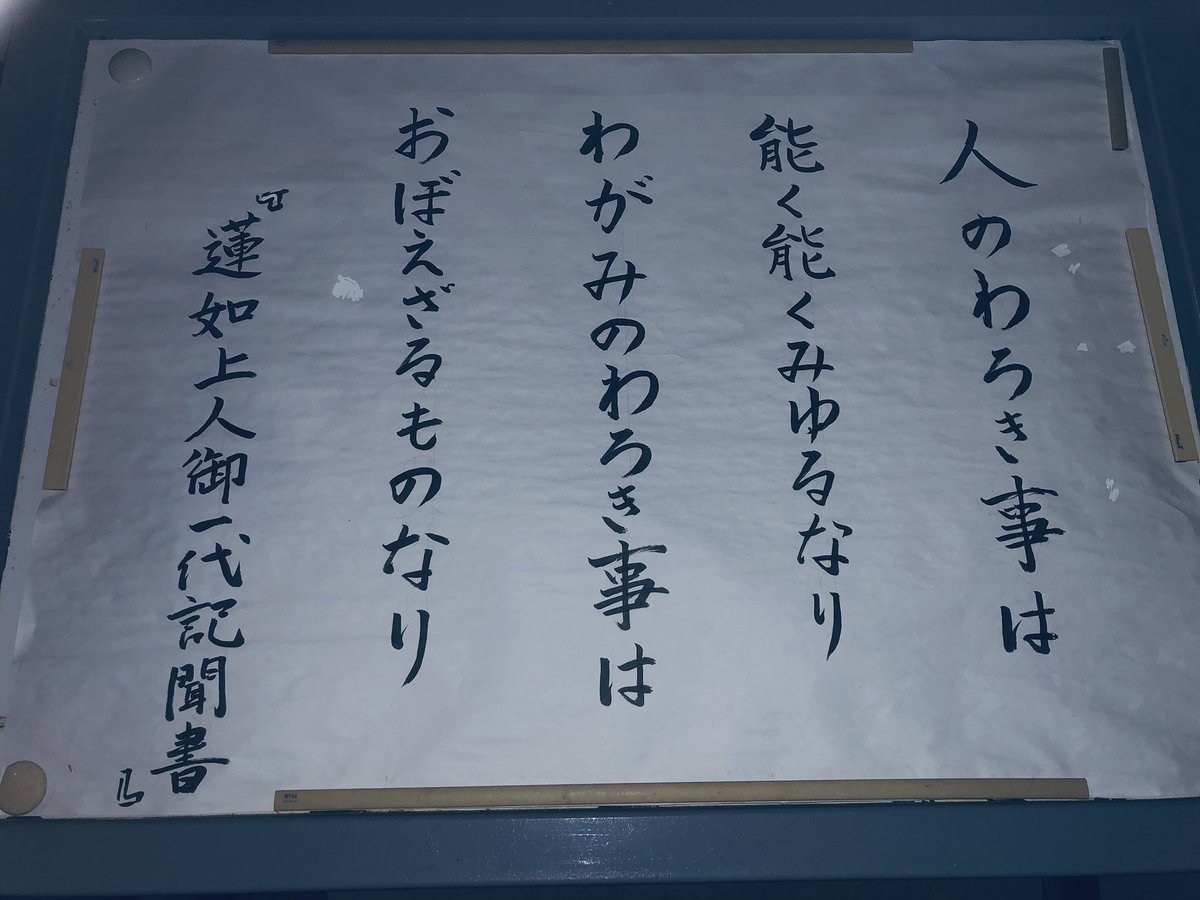 人のわろき事は
能く能くみゆるなり
わがみのわろき事は
おぼえざるものなり
『蓮如上人御一代記聞書』